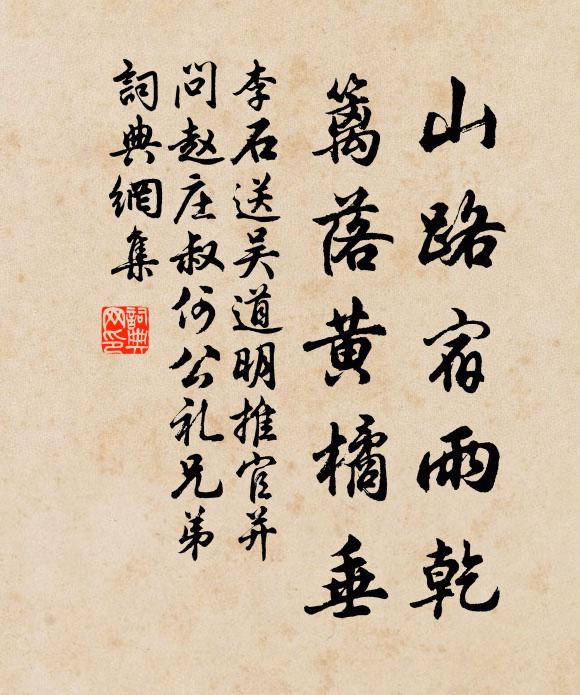 山路宿雨乾
篱落黄橘垂
李石送吴道明推官并
问赵庄叔何公礼兄弟
詞典網集
詞典
网印